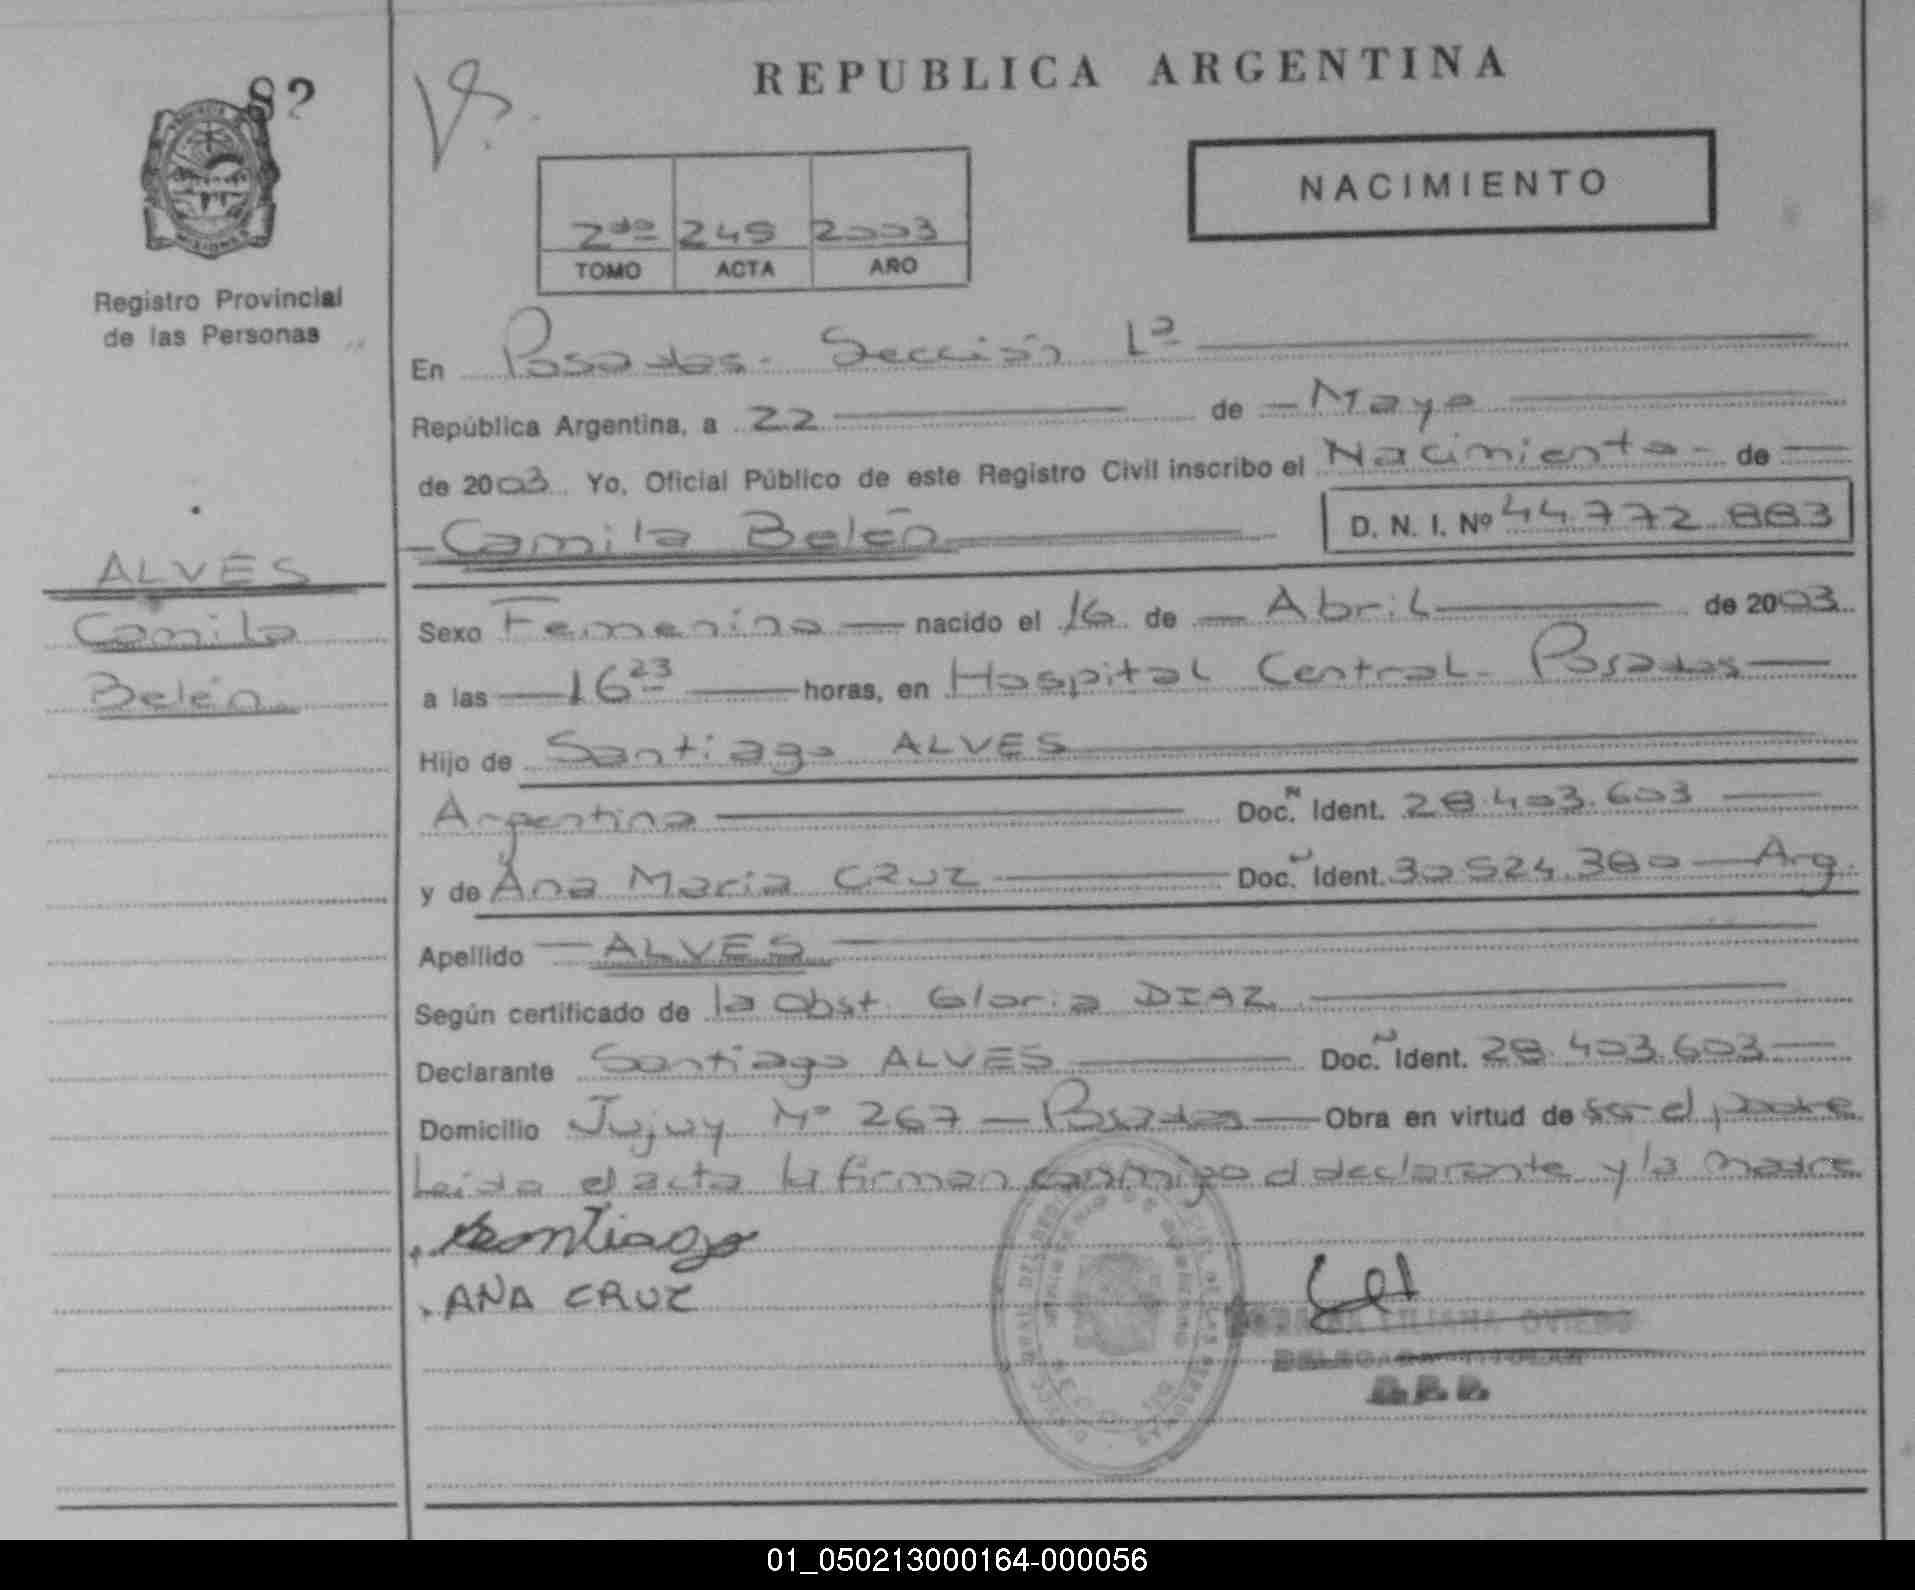 REPUBLICA ARGENTINA
82
NACIMIENTO
2do 245 2003
TOMO ACTA AÑO
Registro Provincial
de las Personas
En Posadas. Sección 1a
República Argentina, a 22 de Mayo
de 2003 Yo, Oficial Público de este Registro Civil inscribo el Nacimiento de
Camila Belén D. N. I. Nº 44.772.883
ALVES
Camila
Belén
Sexo Femenino nacido el 16 de Abril de 2003
a las 16 23 horas, en Hospital Central. Posadas
Hijo de Santiago ALVES
Argentino Doc. Ident. 28.403.603
y de Ana Maria CRUZ Doc. Ident. 30.524.380 Arg.
Apellido ALVES
Según certificado de la Obst. Gloria DIAZ
Declarante Santiago ALVES Doc. Ident. 28.403.603
Domicilio Jujuy Nº 267 Posadas Obra en virtud de ser el padre
Leida el acta la firman conmigo el declarante y la madre
Santiago
ANA CRUZ
LILIANA OVIEDO
DELEGADA TITULAR
01_050213000164-000056